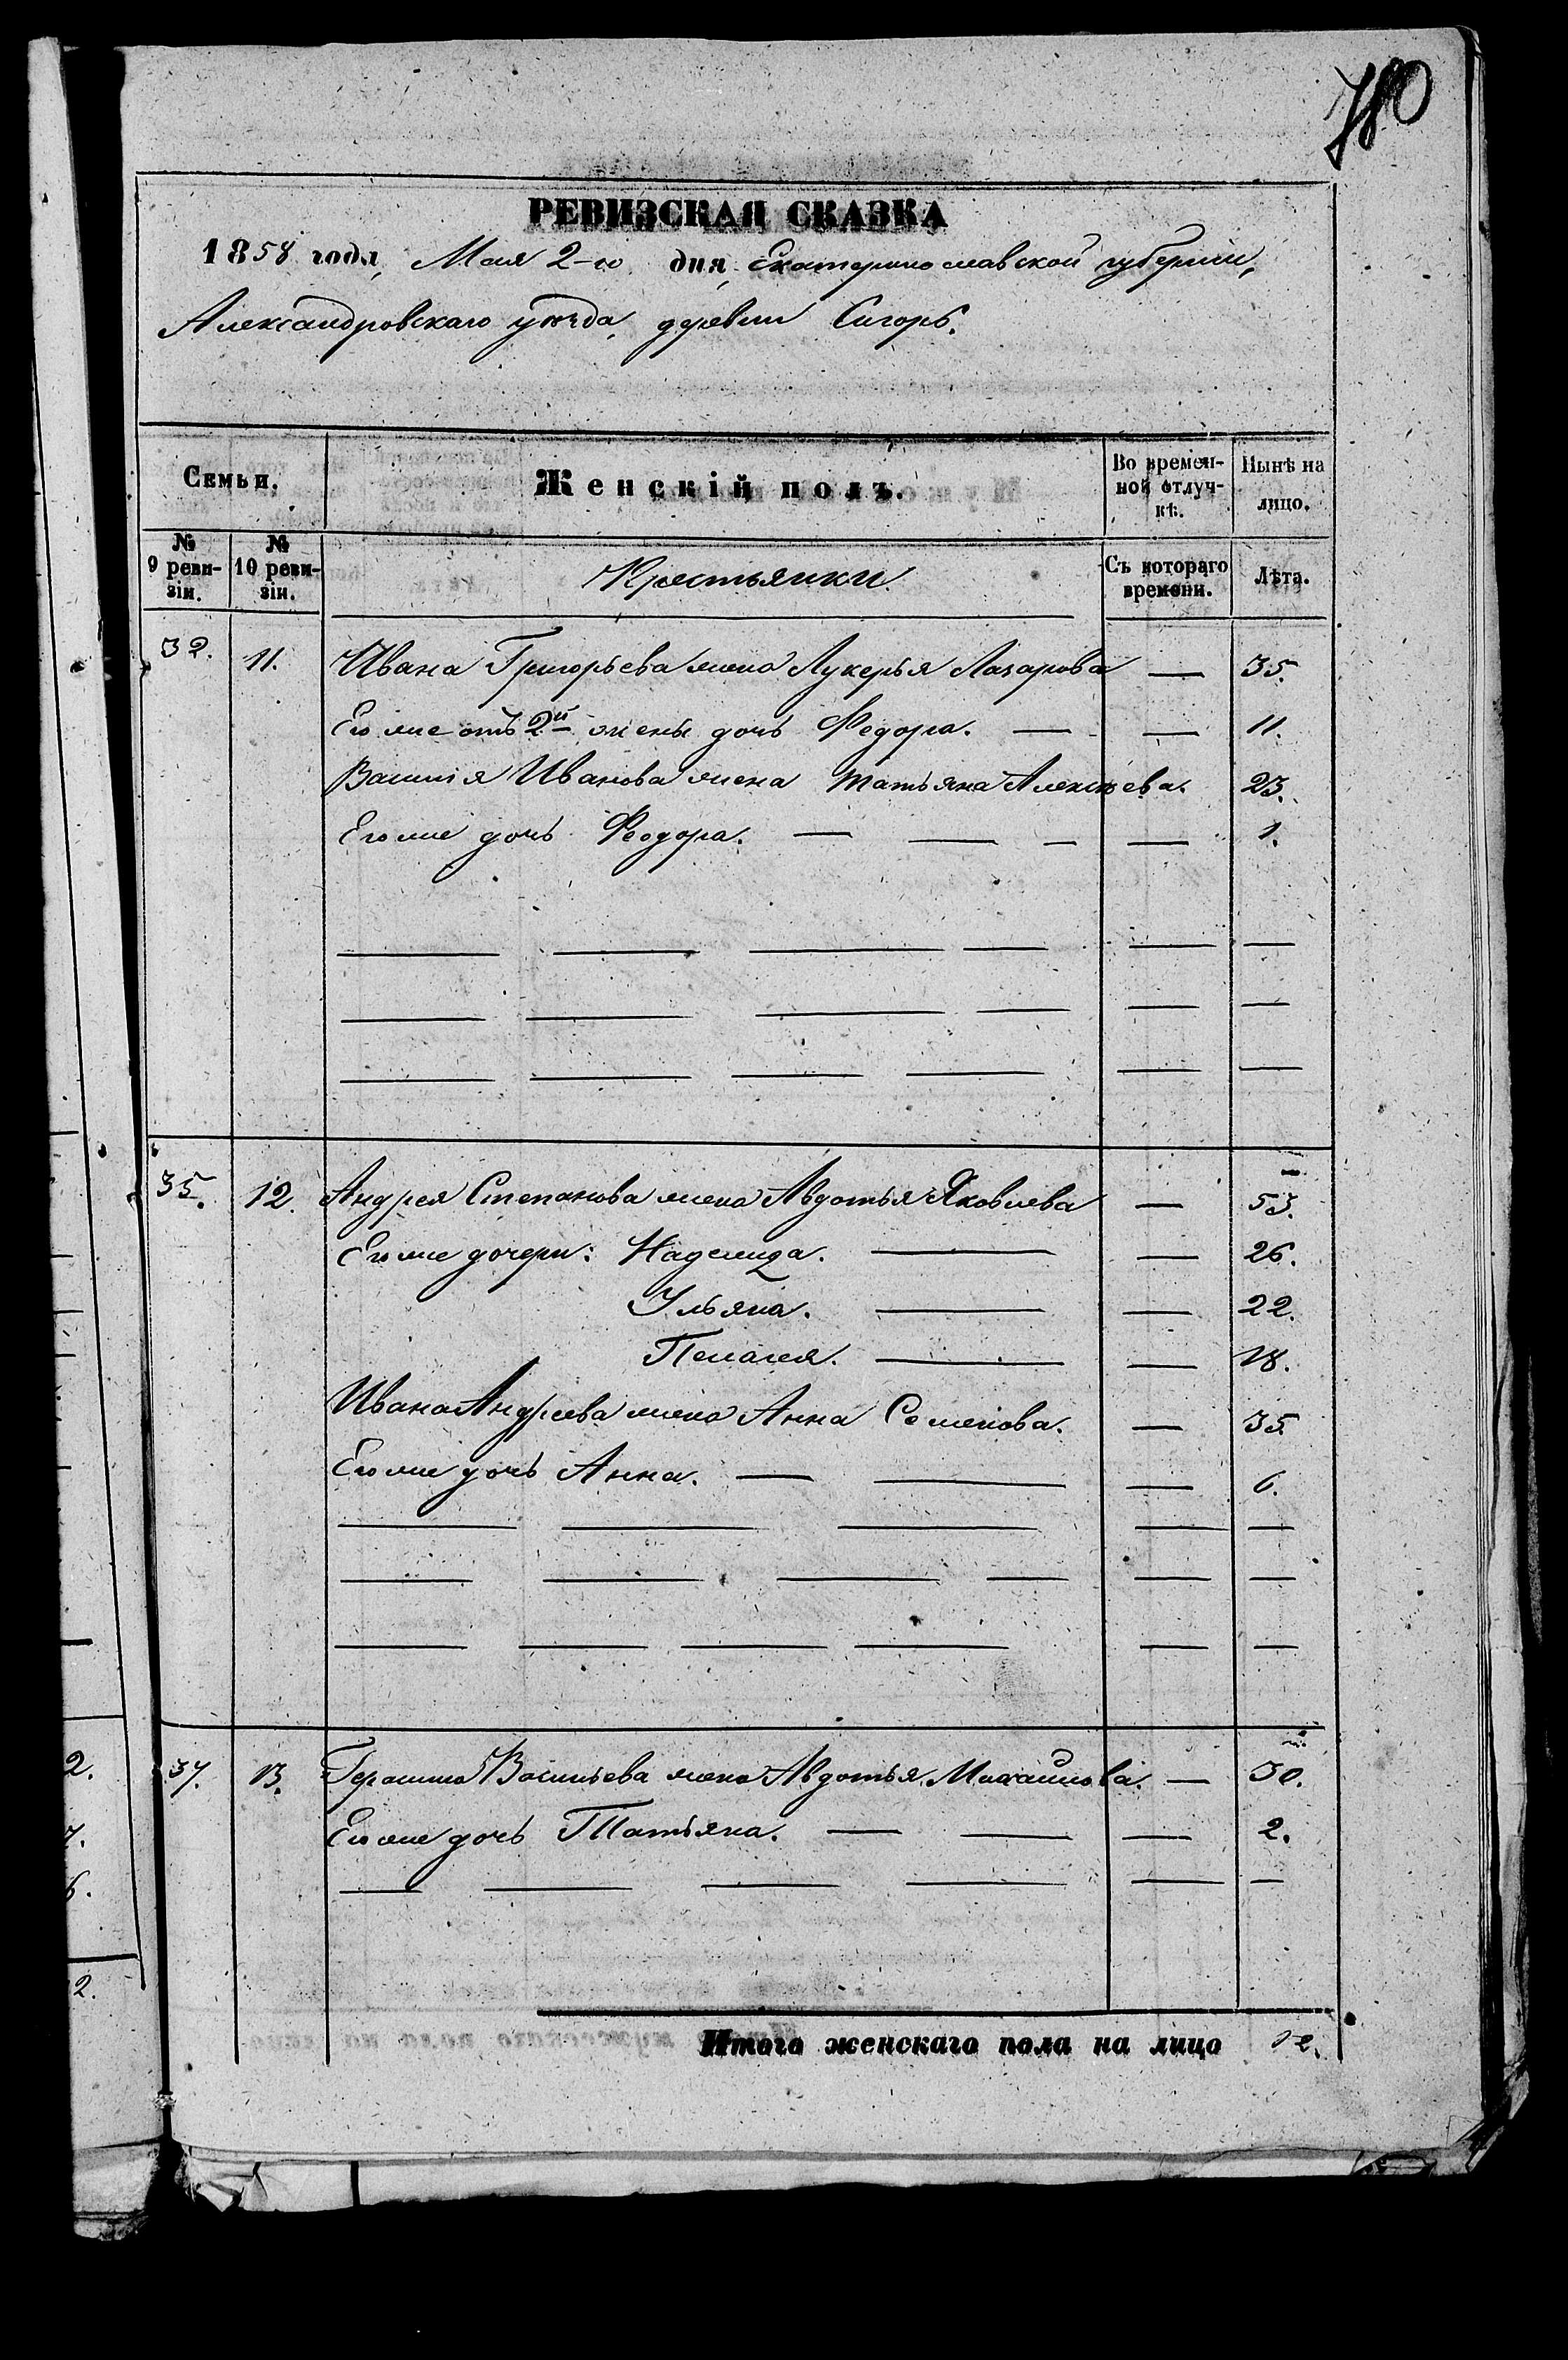 780
РЕВИЗСКАЯ СКАЗКА
1858 года, Мая 2-го дня, Екатеринославской губернии,
Александровскаго уѣзда, деревни
Семьи.
Женскій полъ.
Во времен-
ной отлуч-
кѣ.
Нынѣ на
лицо.
№
9 реви-
зіи.
№
10 реви-
зіи.
Крестьянки.
Съ котораго
времени.
Лѣта.
32. 11. Ивана Григорьева жена Лукерья Лазарова — 35.
Его же отъ 2й жены дочь Федора. — — 11.
Василія Иванова жена Татьяна Алексѣева. 23.
Его же дочь Феодора. — — — — 1.
35. 12. Андрея Степанова жена Авдотья Яковлева — 53.
Его же дочери: Надежда. — — 26.
Ульяна. — — 22.
Пелагея. — — 18.
Ивана Андреева жена Анна Семенова. — 35.
Его же дочь Анна. — — — 6.
37. 13. Герасима Васильева жена Авдотья Михайлова. — 30.
Его же дочь Татьяна. — — — 2.
Итого женскаго пола на лицо 12.
2.
7.
6.
2.